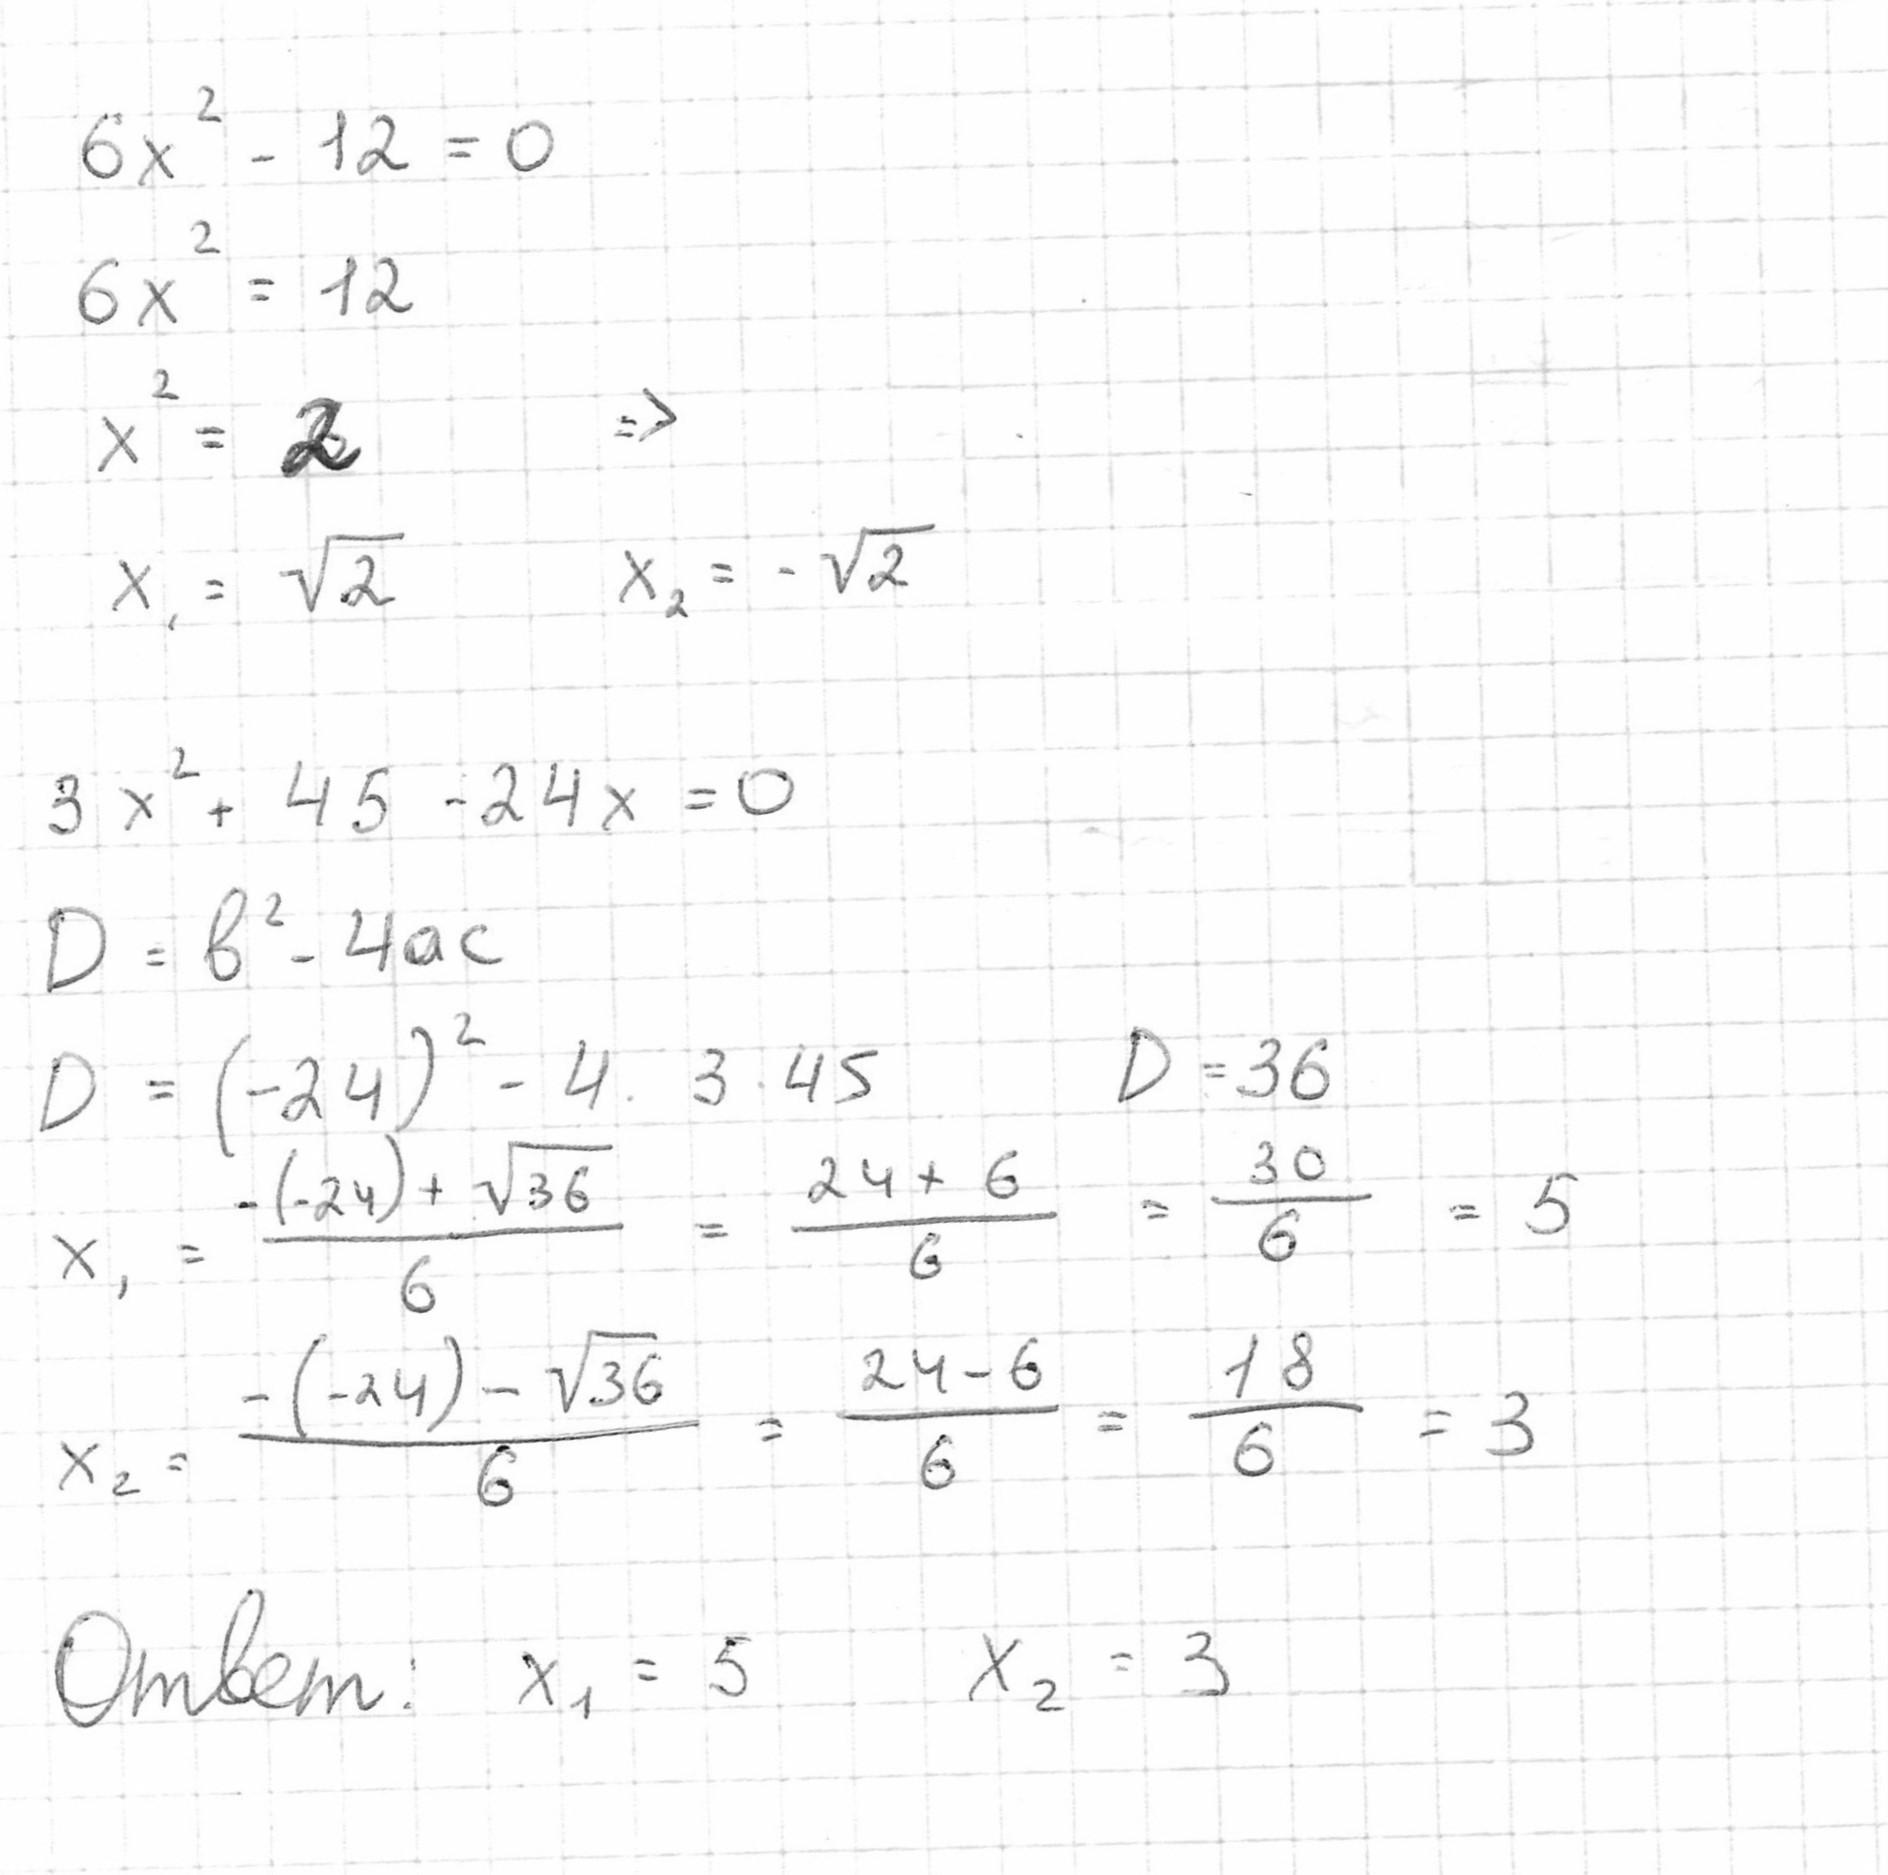 6x² - 12 = 0
6x² = 12
x² = 2 =>
x₁ = √2 x₂ = -√2
3x² + 45 - 24x = 0
D = b² - 4ac
D = (-24)² - 4 · 3 · 45 D = 36
x₁ = (-(-24) + √36)/6 = (24 + 6)/6 = 30/6 = 5
x₂ = (-(-24) - √36)/6 = (24 - 6)/6 = 18/6 = 3
Ответ: x₁ = 5 x₂ = 3